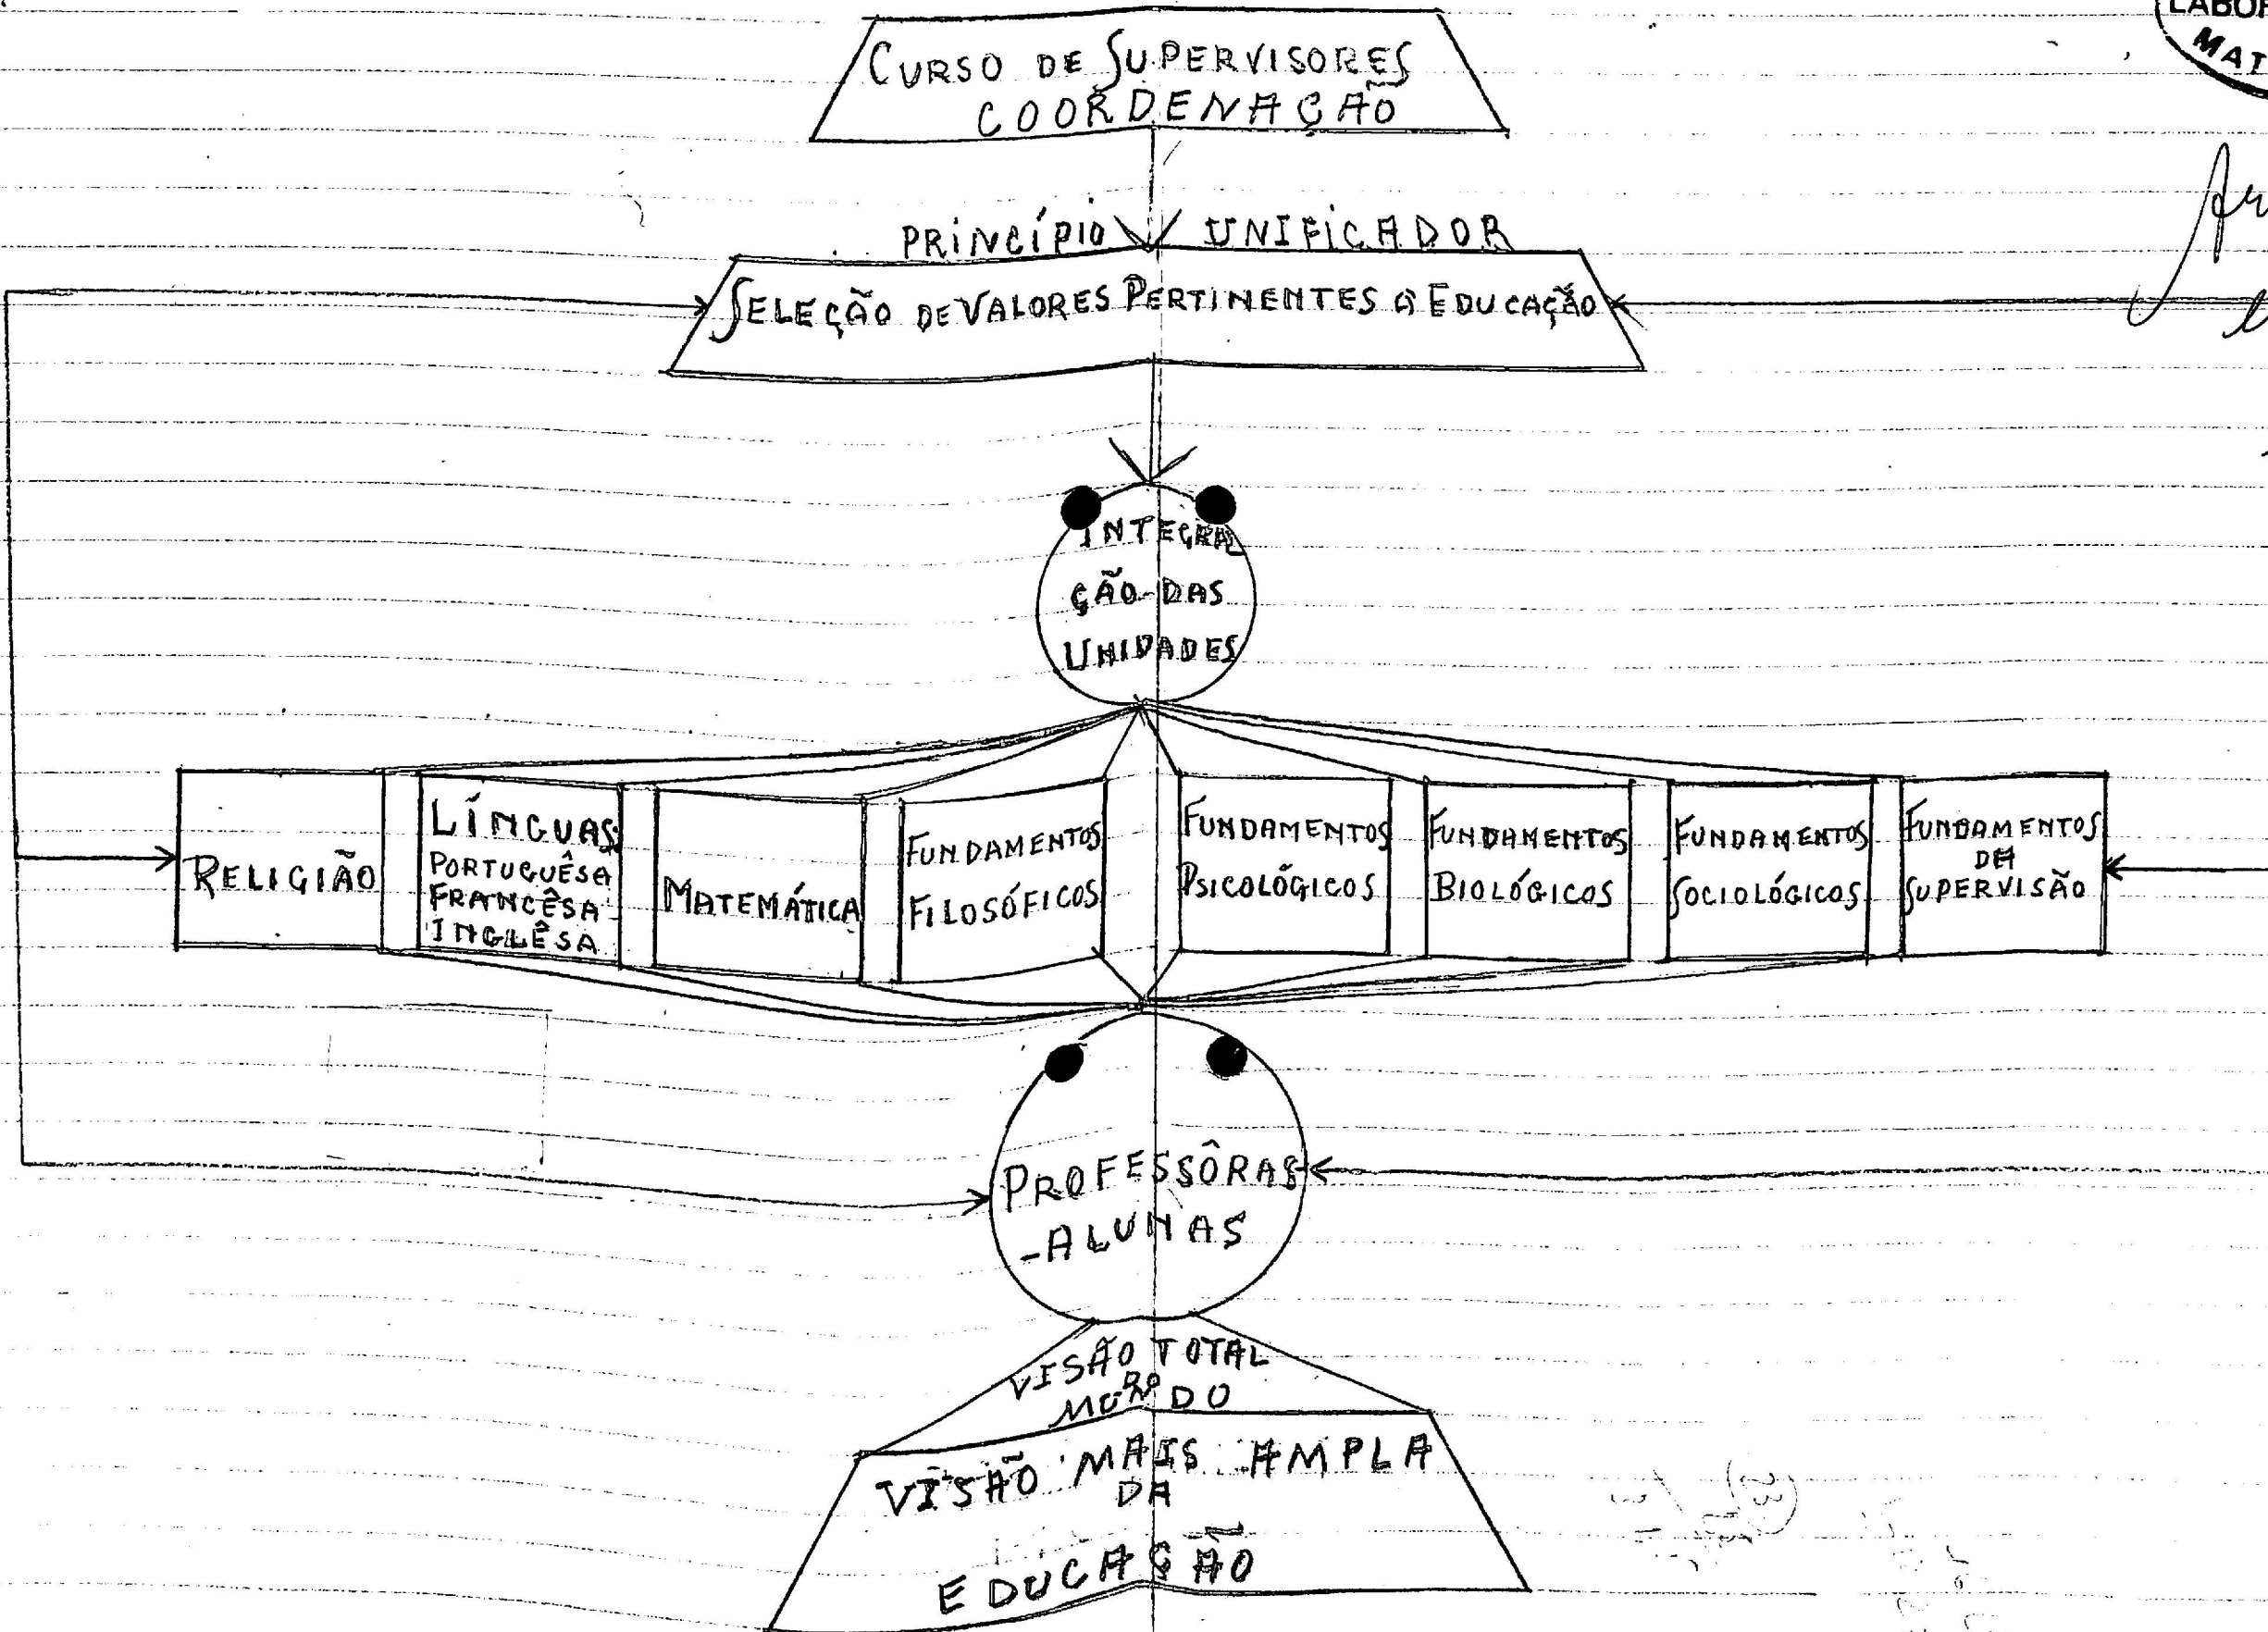 LABOR
MAT
CURSO DE SUPERVISORES
COORDENAÇÃO
PRINCÍPIO UNIFICADOR
SELEÇÃO DE VALORES PERTINENTES A EDUCAÇÃO
INTEGRA
ÇÃO DAS
UNIDADES
RELIGIÃO
LÍNGUAS
PORTUGUÊSA
FRANCÊSA
INGLÊSA
MATEMÁTICA
FUNDAMENTOS
FILOSÓFICOS
FUNDAMENTOS
PSICOLÓGICOS
FUNDAMENTOS
BIOLÓGICOS
FUNDAMENTOS
SOCIOLÓGICOS
FUNDAMENTOS
DA
SUPERVISÃO
PROFESSÔRAS
-ALUNAS
VISÃO TOTAL
DO
MUNDO
VISÃO MAIS AMPLA
DA
EDUCAÇÃO